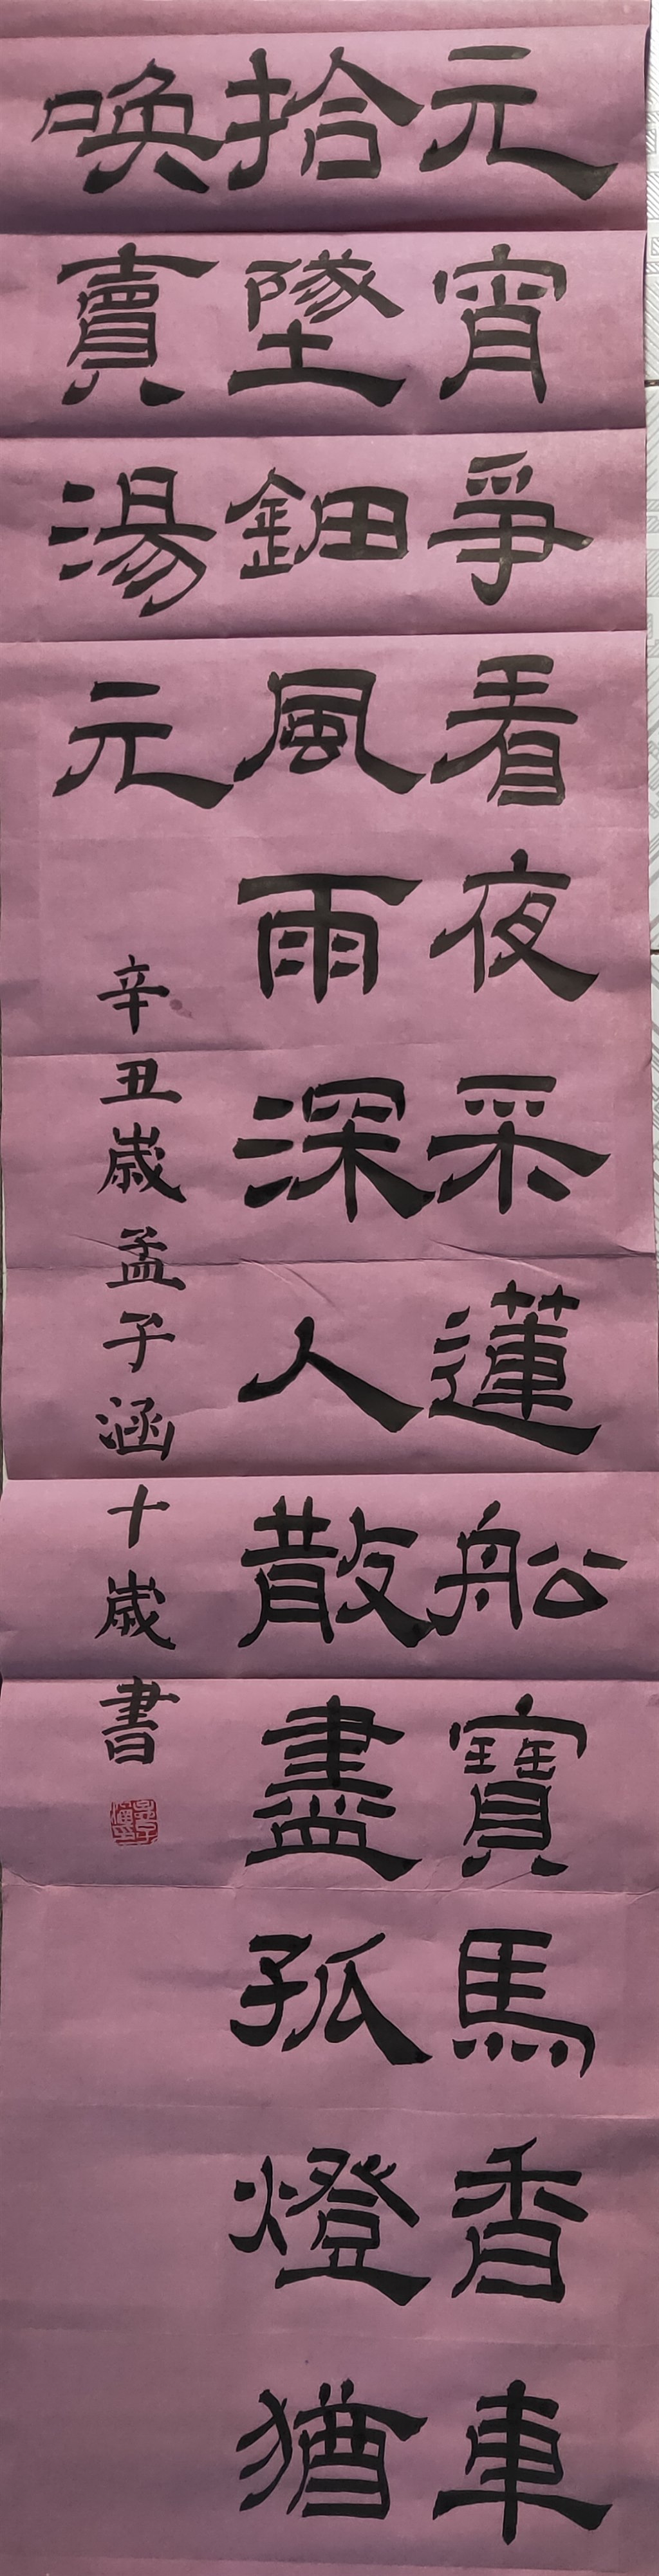 元宵爭看夜采蓮船寶馬香車
拾墜鈿風雨深人散盡孤燈猶
喚賣湯元
辛丑歲孟子涵十歲書